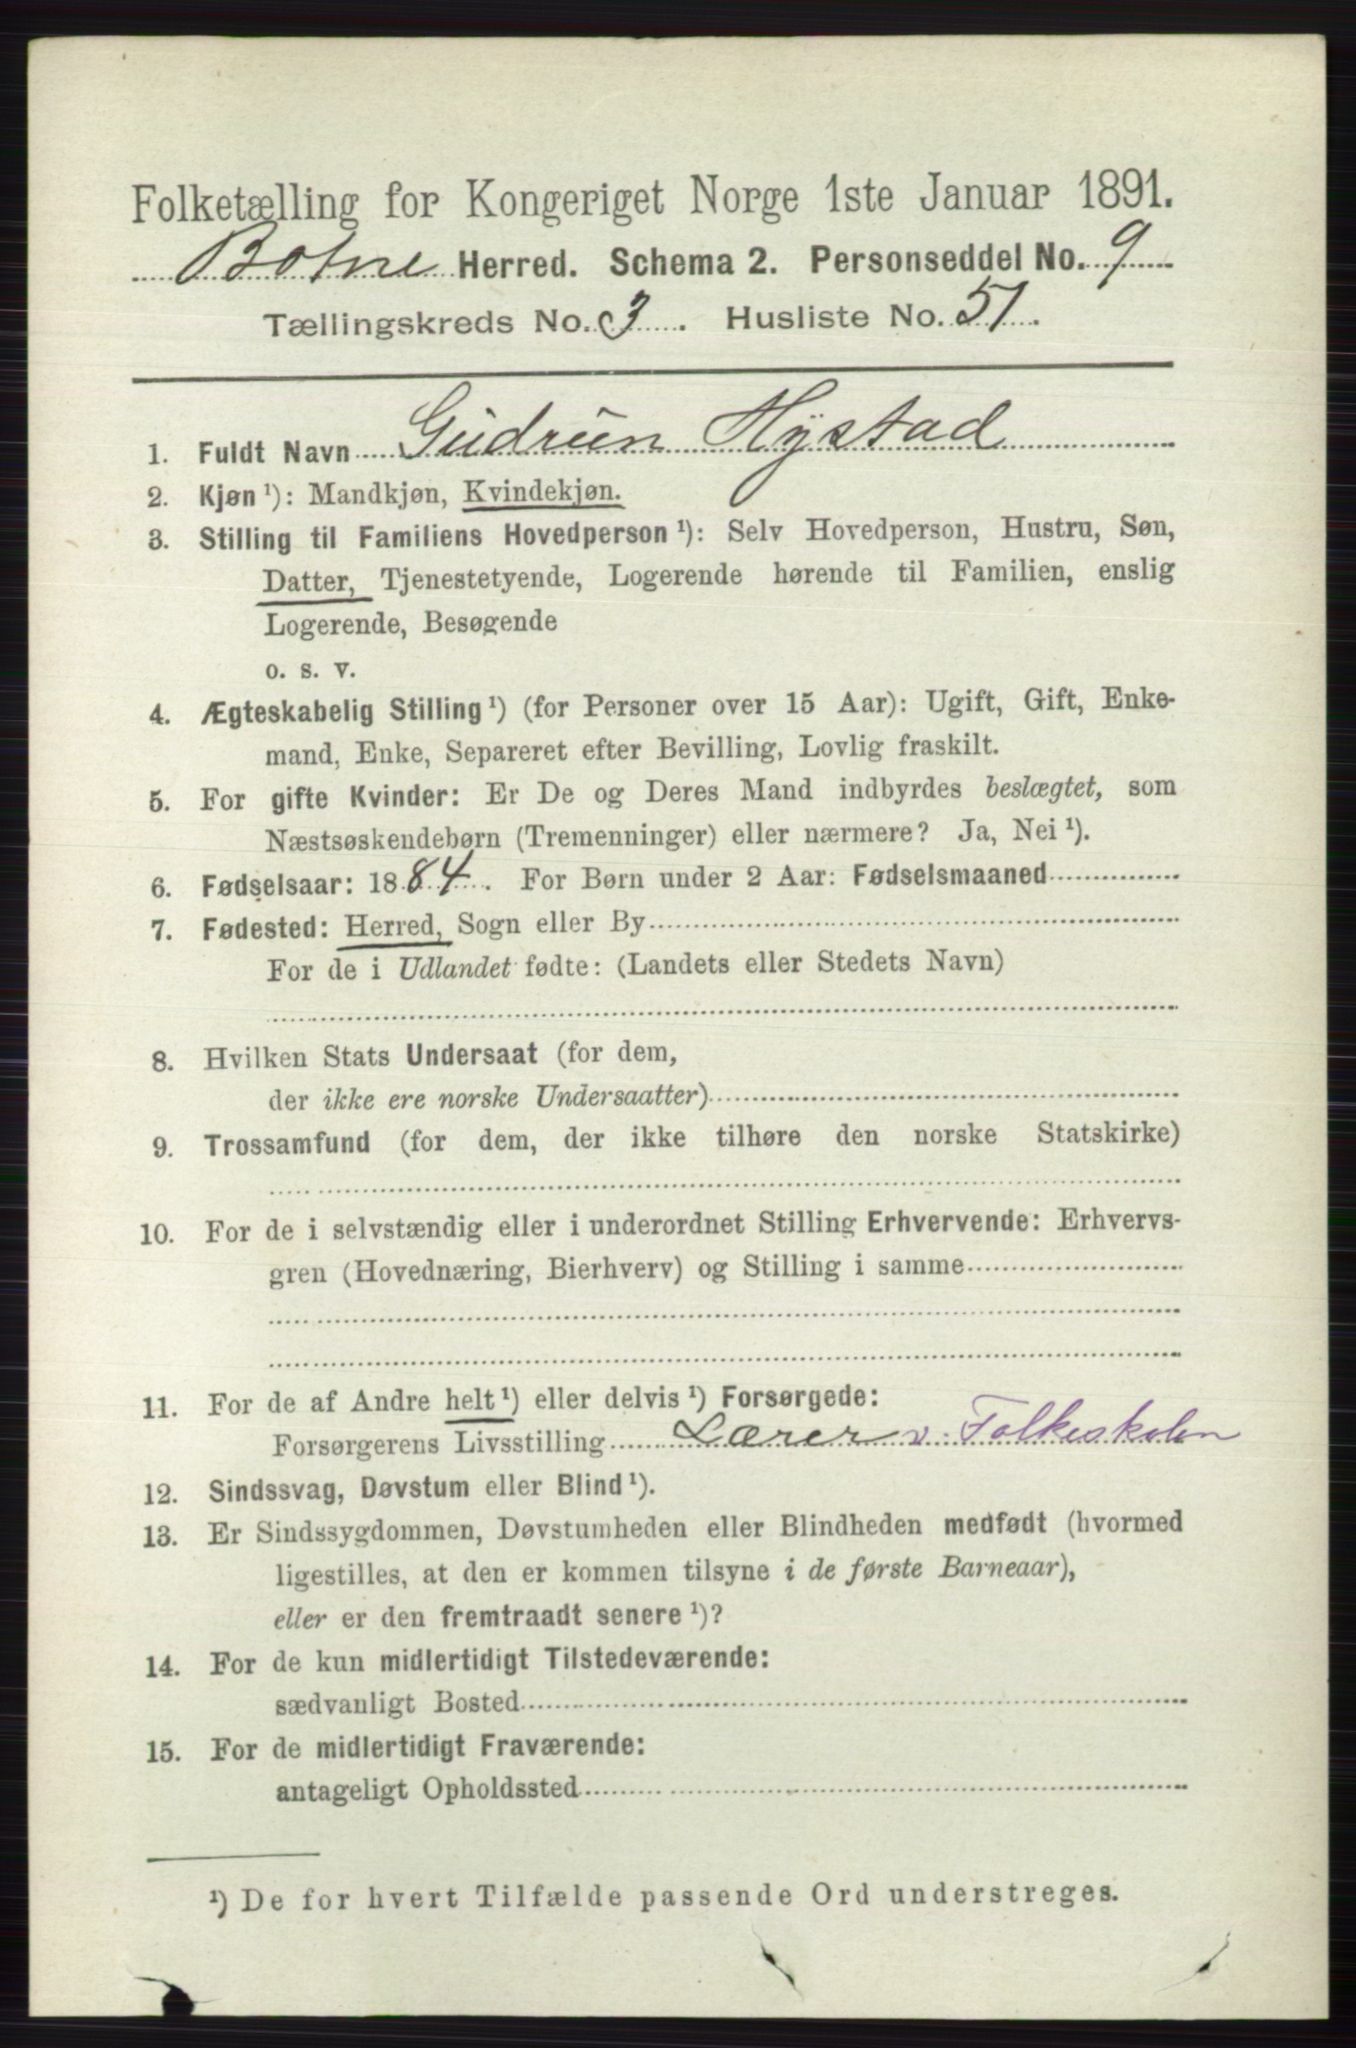 Folketælling for Kongeriget Norge 1ste Januar 1891.
Botne Herred. Schema 2. Personseddel No. 9
Tællingskreds No. 3. Husliste No. 51.
1. Fuldt Navn Gudrun Hystad
2. Kjøn ¹): Mandkjøn, Kvindekjøn.
3. Stilling til Familiens Hovedperson ¹): Selv Hovedperson, Hustru, Søn,
Datter, Tjenestetyende, Logerende hørende til Familien, enslig
Logerende, Besøgende
o. s. v.
4. Ægteskabelig Stilling ¹) (for Personer over 15 Aar): Ugift, Gift, Enke-
mand, Enke, Separeret efter Bevilling, Lovlig fraskilt.
5. For gifte Kvinder: Er De og Deres Mand indbyrdes beslægtet, som
Næstsøskendebørn (Tremenninger) eller nærmere? Ja, Nei ¹).
6. Fødselsaar: 1884. For Børn under 2 Aar: Fødselsmaaned
7. Fødested: Herred, Sogn eller By
For de i Udlandet fødte: (Landets eller Stedets Navn)
8. Hvilken Stats Undersaat (for dem,
der ikke ere norske Undersaatter)
9. Trossamfund (for dem, der ikke tilhøre den norske Statskirke)
10. For de i selvstændig eller i underordnet Stilling Erhvervende: Erhvervs-
gren (Hovednæring, Bierhverv) og Stilling i samme
11. For de af Andre helt ¹) eller delvis ¹) Forsørgede:
Forsørgerens Livsstilling Lærer v. Folkeskolen
12. Sindssvag, Døvstum eller Blind ¹).
13. Er Sindssygdommen, Døvstumheden eller Blindheden medfødt (hvormed
ligestilles, at den er kommen tilsyne i de første Barneaar),
eller er den fremtraadt senere ¹)?
14. For de kun midlertidigt Tilstedeværende:
sædvanligt Bosted
15. For de midlertidigt Fraværende:
antageligt Opholdssted
¹) De for hvert Tilfælde passende Ord understreges.